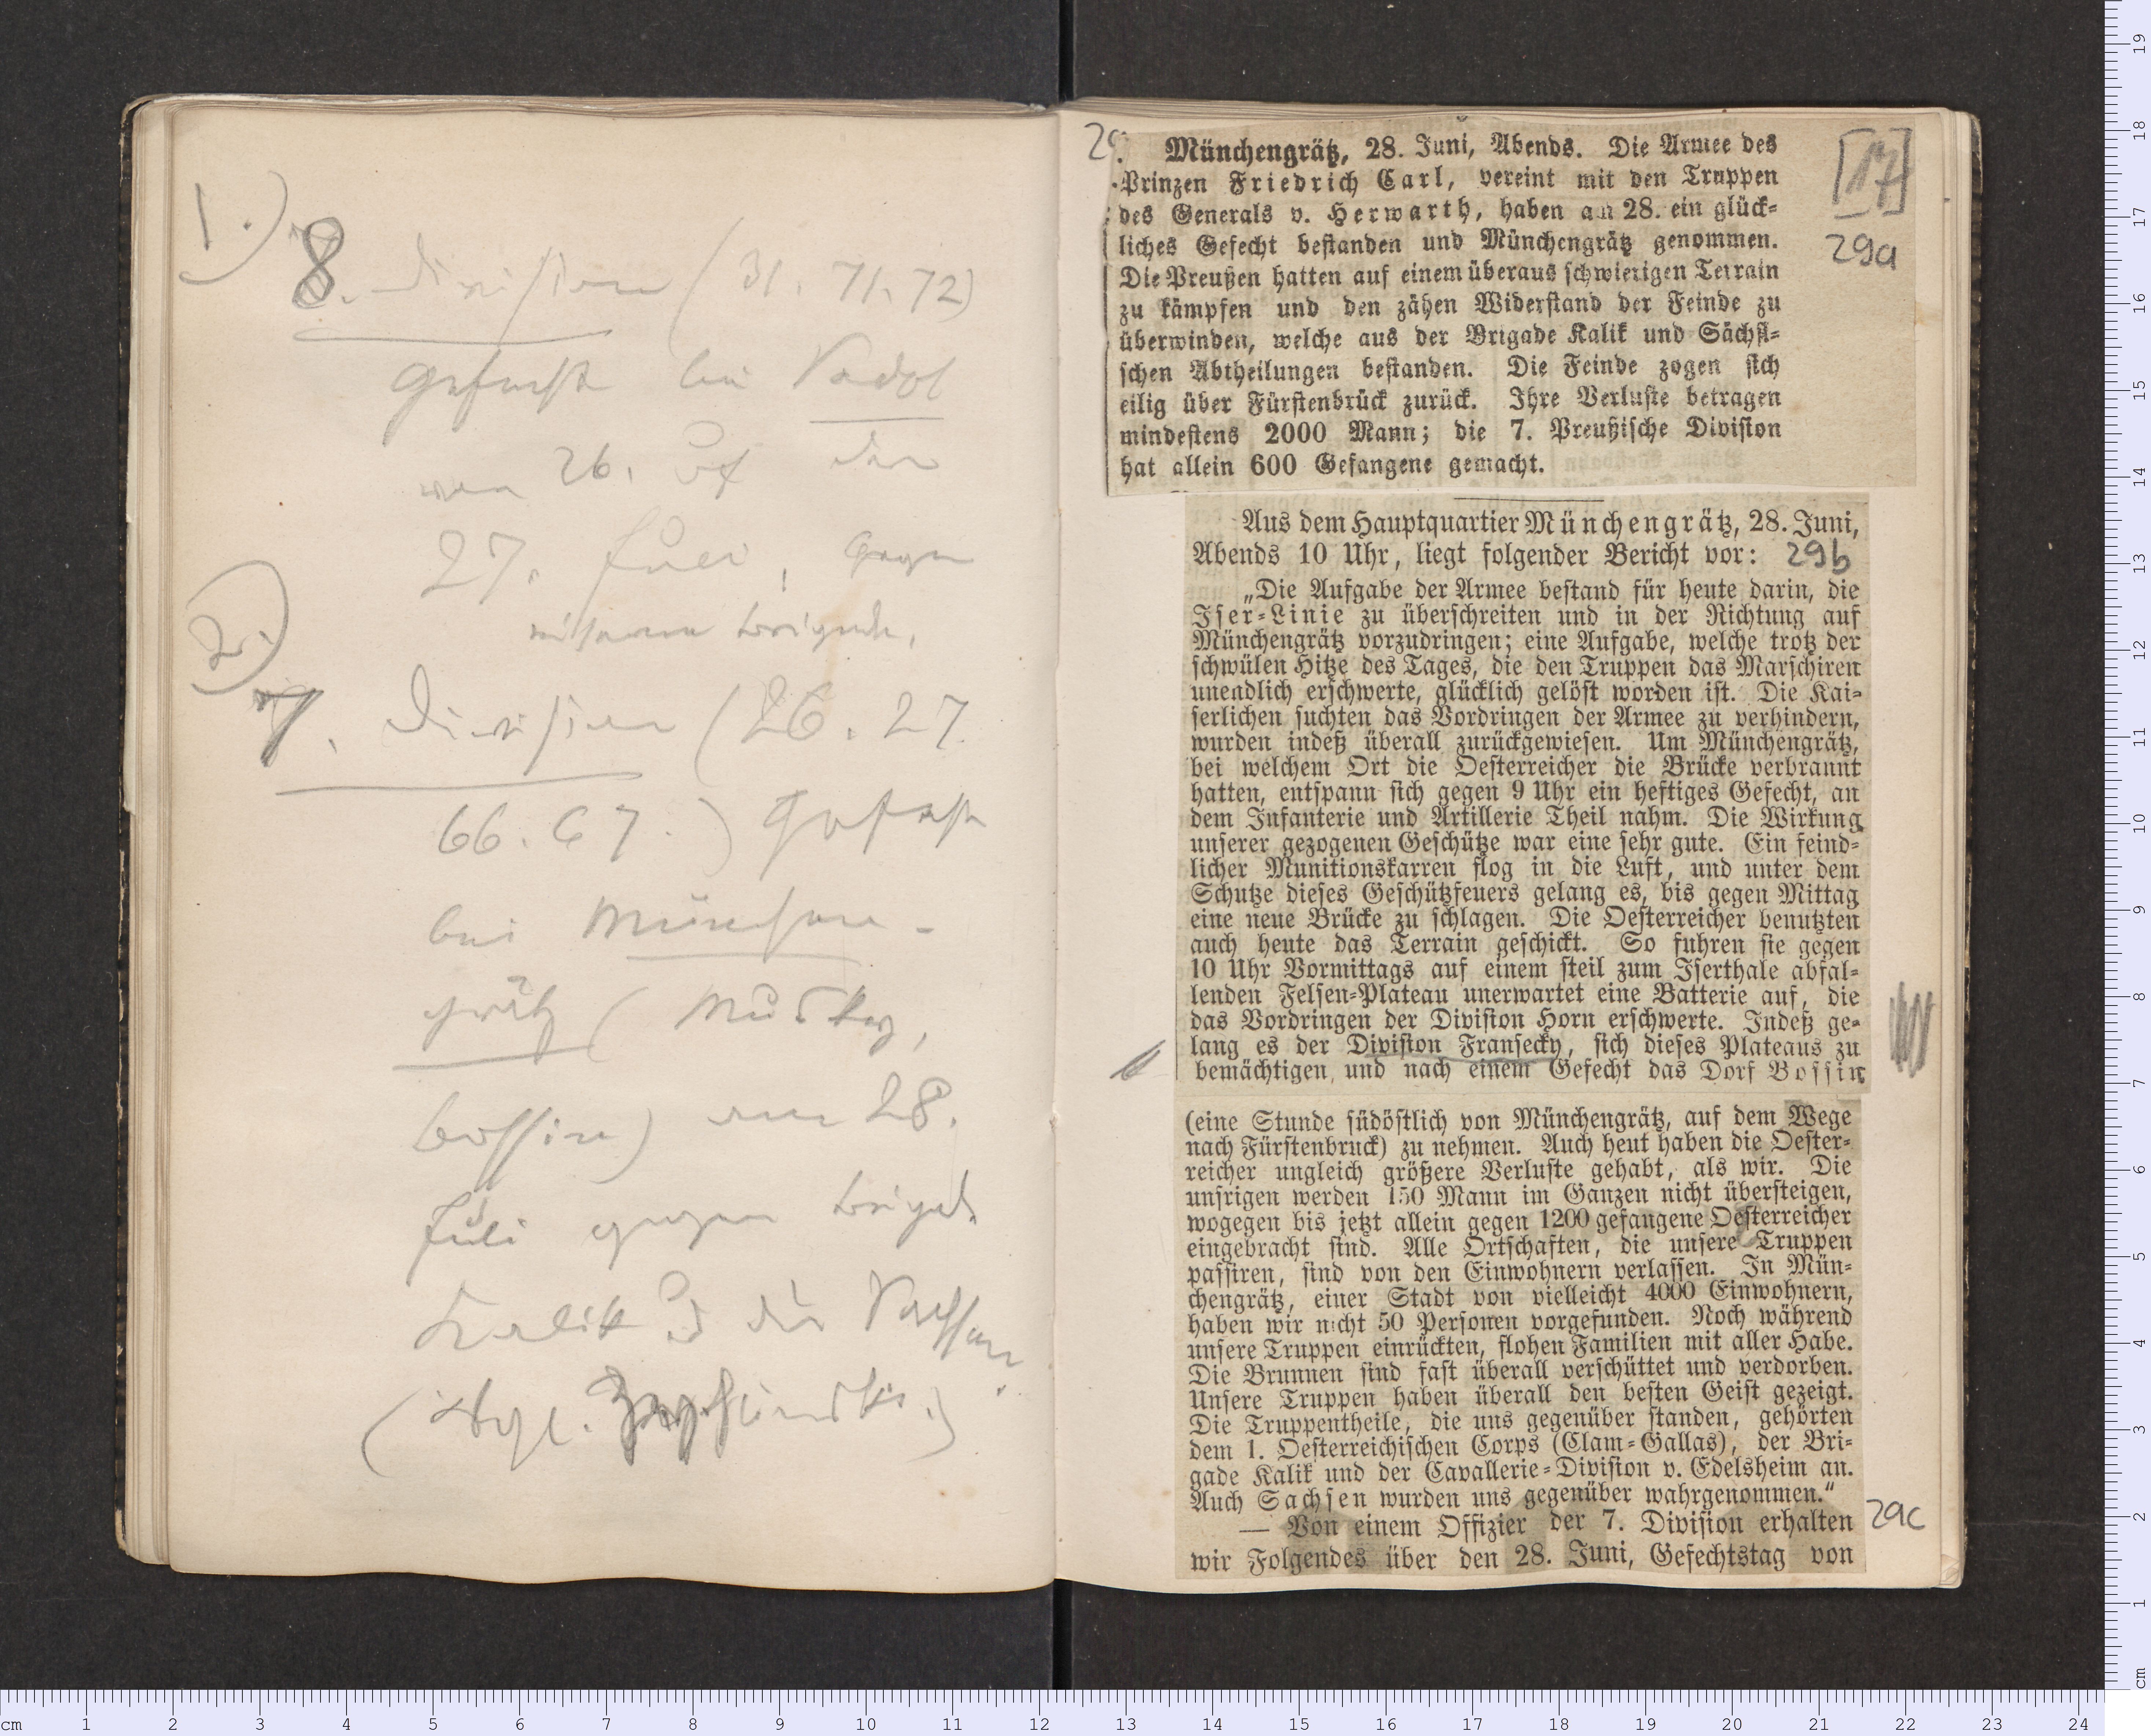 1.)
8. Division (31. 71. 72)
Gefecht bei Podol
vom 26. auf den
27. Juni, gegen
eiserne Brigade.
2.)
7. Division (26. 27.
66. 67.) Gefecht
bei München-
grätz (Musky,
Bossin) am 28.
Juli gegen Brigade
Kalik und die Sachsen.
29.
[17]
29a
Münchengrätz, 28. Juni, Abends. Die Armee des
Prinzen Friedrich Carl, vereint mit den Truppen
des Generals v. Herwarth, haben am 28. ein glück-
liches Gefecht bestanden und Münchengrätz genommen.
Die Preußen hatten auf einem überaus schwierigen Terrain
zu kämpfen und den zähen Widerstand der Feinde zu
überwinden, welche aus der Brigade Kalik und Sächsi-
schen Abtheilungen bestanden. Die Feinde zogen sich
eilig über Fürstenbrück zurück. Ihre Verluste betragen
mindestens 2000 Mann; die 7. Preußische Division
hat allein 600 Gefangene gemacht.
Aus dem Hauptquartier Münchengrätz, 28. Juni,
Abends 10 Uhr, liegt folgender Bericht vor: 29b
„Die Aufgabe der Armee bestand für heute darin, die
Iser-Linie zu überschreiten und in der Richtung auf
Münchengrätz vorzudringen; eine Aufgabe, welche trotz der
schwülen Hitze des Tages, die den Truppen das Marschiren
unendlich erschwerte, glücklich gelöst worden ist. Die Kai-
serlichen suchten das Vordringen der Armee zu verhindern,
wurden indeß überall zurückgewiesen. Um Münchengrätz,
bei welchem Ort die Oesterreicher die Brücke verbrannt
hatten, entspann sich gegen 9 Uhr ein heftiges Gefecht, an
dem Infanterie und Artillerie Theil nahm. Die Wirkung
unserer gezogenen Geschütze war eine sehr gute. Ein feind-
licher Munitionskarren flog in die Luft, und unter dem
Schutze dieses Geschützfeuers gelang es, bis gegen Mittag
eine neue Brücke zu schlagen. Die Oesterreicher benutzten
auch heute das Terrain geschickt. So fuhren sie gegen
10 Uhr Vormittags auf einem steil zum Iserthale abfal-
lenden Felsen-Plateau unerwartet eine Batterie auf, die
das Vordringen der Division Horn erschwerte. Indeß ge-
lang es der Division Fransecky, sich dieses Plateaus zu
bemächtigen, und nach einem Gefecht das Dorf Bossin
(eine Stunde südöstlich von Münchengrätz, auf dem Wege
nach Fürstenbruck) zu nehmen. Auch heut haben die Oester-
reicher ungleich größere Verluste gehabt, als wir. Die
unsrigen werden 150 Mann im Ganzen nicht übersteigen,
wogegen bis jetzt allein gegen 1200 gefangene Oesterreicher
eingebracht sind. Alle Ortschaften, die unsere Truppen
passiren, sind von den Einwohnern verlassen. In Mün-
chengrätz, einer Stadt von vielleicht 4000 Einwohnern,
haben wir nicht 50 Personen vorgefunden. Noch während
unsere Truppen einrückten, flohen Familien mit aller Habe.
Die Brunnen sind fast überall verschüttet und verdorben.
Unsere Truppen haben überall den besten Geist gezeigt.
Die Truppentheile, die uns gegenüber standen, gehörten
dem 1. Oesterreichischen Corps (Clam-Gallas), der Bri-
gade Kalik und der Cavallerie-Division v. Edelsheim an.
Auch Sachsen wurden uns gegenüber wahrgenommen."
— Von einem Offizier der 7. Division erhalten 29c
wir Folgendes über den 28. Juni, Gefechtstag von